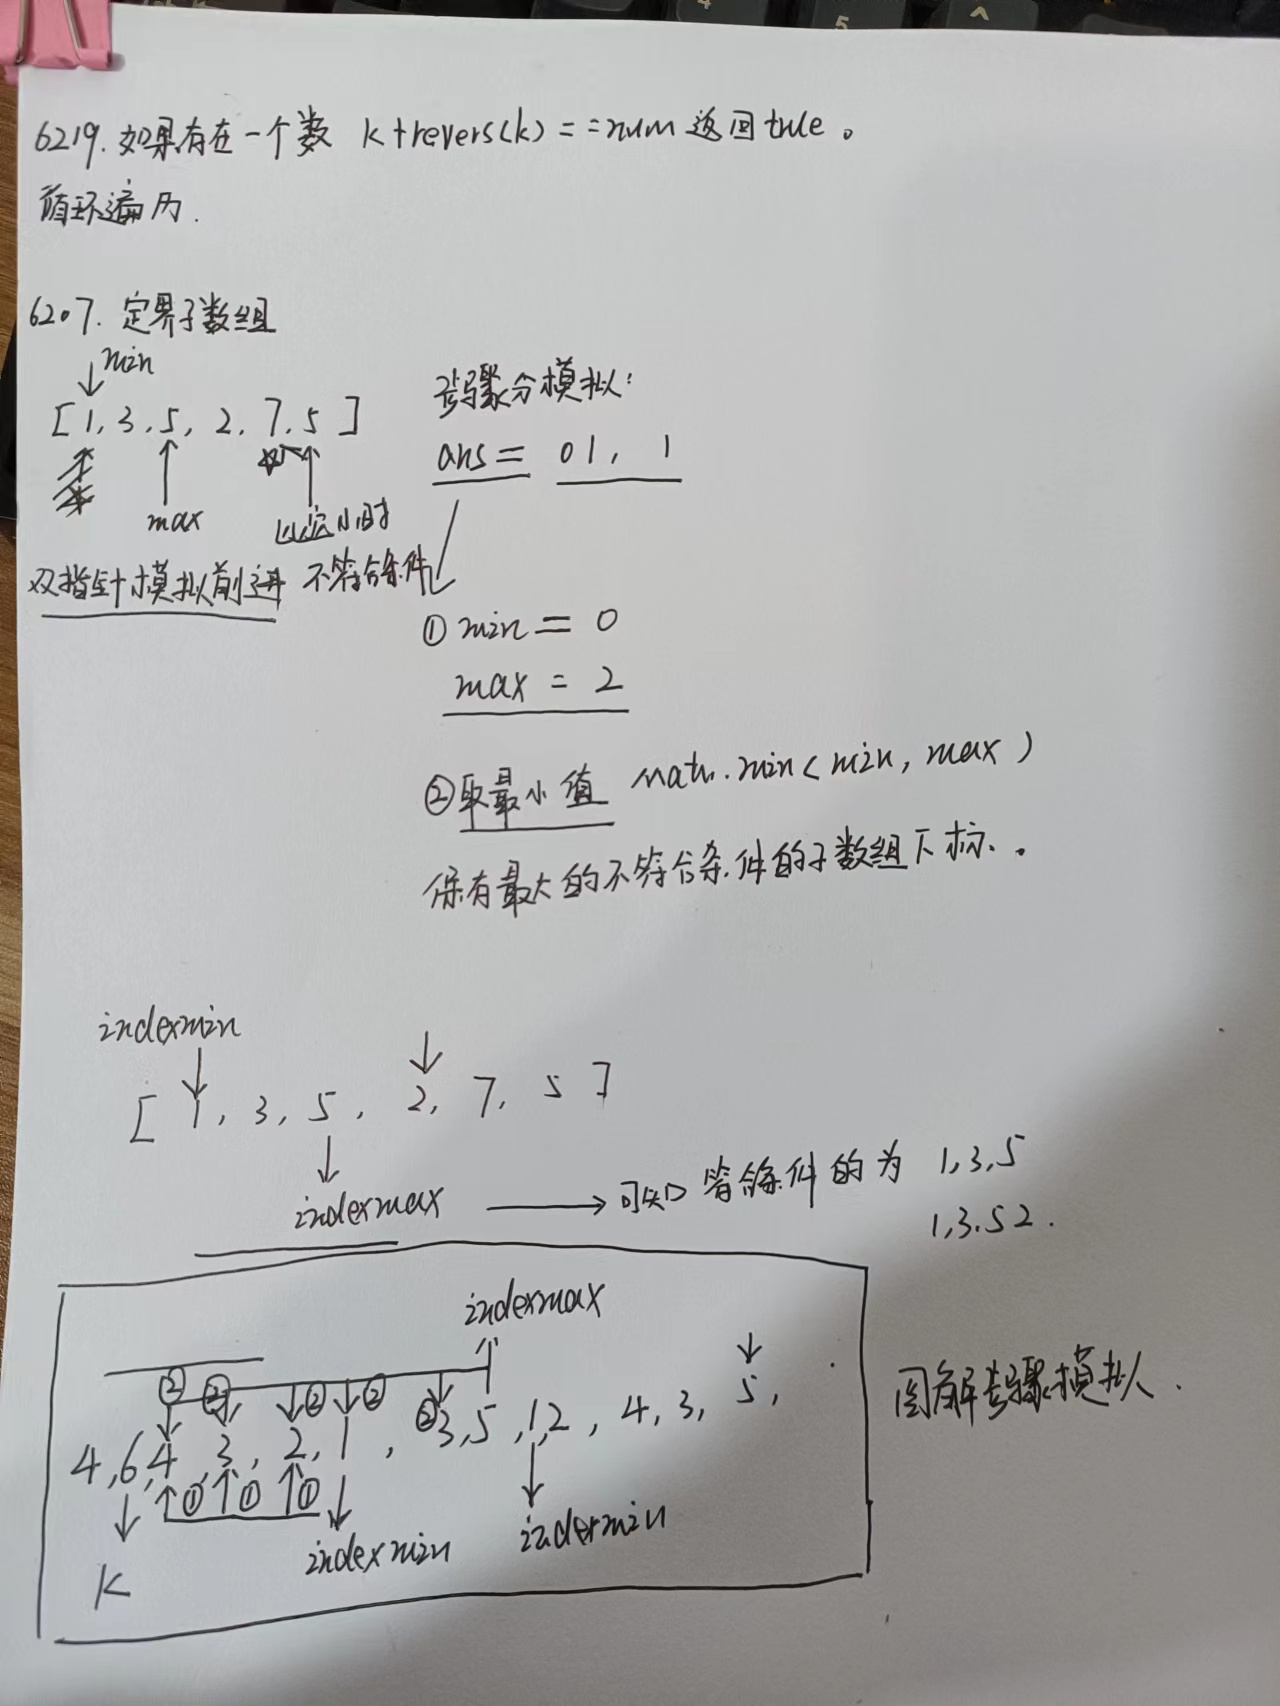 6219. 如果存在一个数 k+revers(k)==num 返回true。
循环遍历.
6207. 定界子数组
min
[1, 3, 5, 2, 7, 5]
max
不符合条件
双指针模拟前进
步骤分模拟:
ans = 01, 1
① min = 0
max = 2
② 取最小值 Math.min(min, max)
保存最大的不符合条件的子数组下标.
indexmin
[1, 3, 5, 2, 7, 5]
indexmax → 可知 符合条件的为 1,3,5
1,3.52.
indexmax
② ② ② ② ②
4,6,4,3,2,1,3,5,1,2,4,3,5,
① ① ①
indexmin indexmin
K
图解步骤模拟.